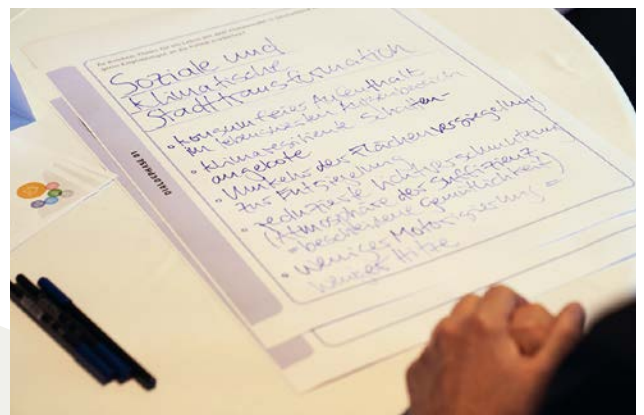 Soziale und
Klimatische
Stadttransformation
• konsumfreier Aufenthalt
im lebenswerten Außenbereich
• Klimaresiliente Schatten-
angebote
• Umkehr der Flächenversiegelung
zur Entsiegelung
• reduzierte Lichtverschmutzung
(Atmosphäre der Suffizienz,
= bescheidene Gemütlichkeit)
• weniger Motorisierung =
weniger Hitze
DIALOGPHASE 01